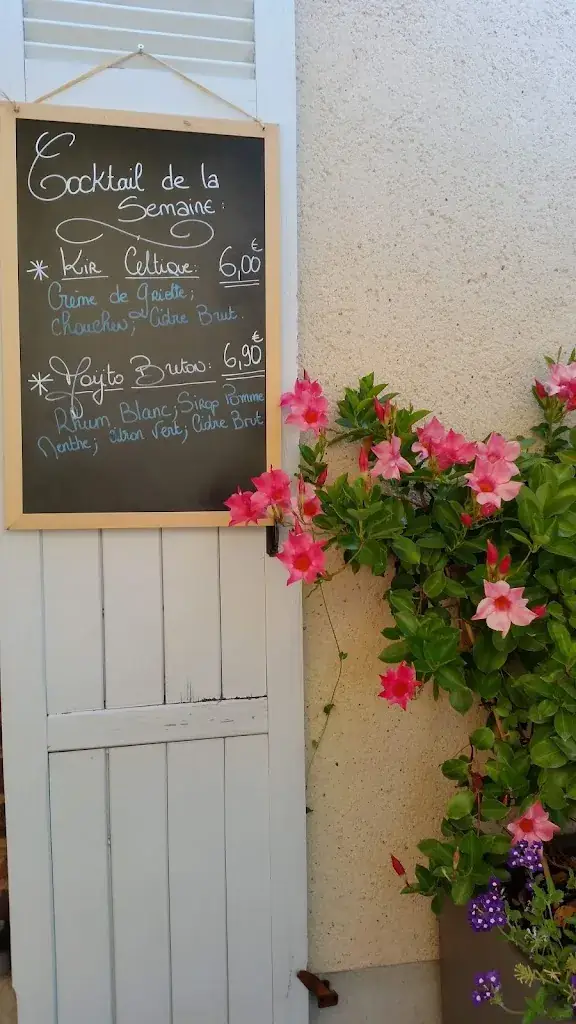 Cocktail de la
Semaine:
* Kir Celtique: 6,00€
Crème de Griotte;
Chouchen; ou Cidre Brut.
* Mojito Breton: 6,90€
Rhum Blanc; Sirop Pomme
Menthe; Citron Vert; Cidre Brut